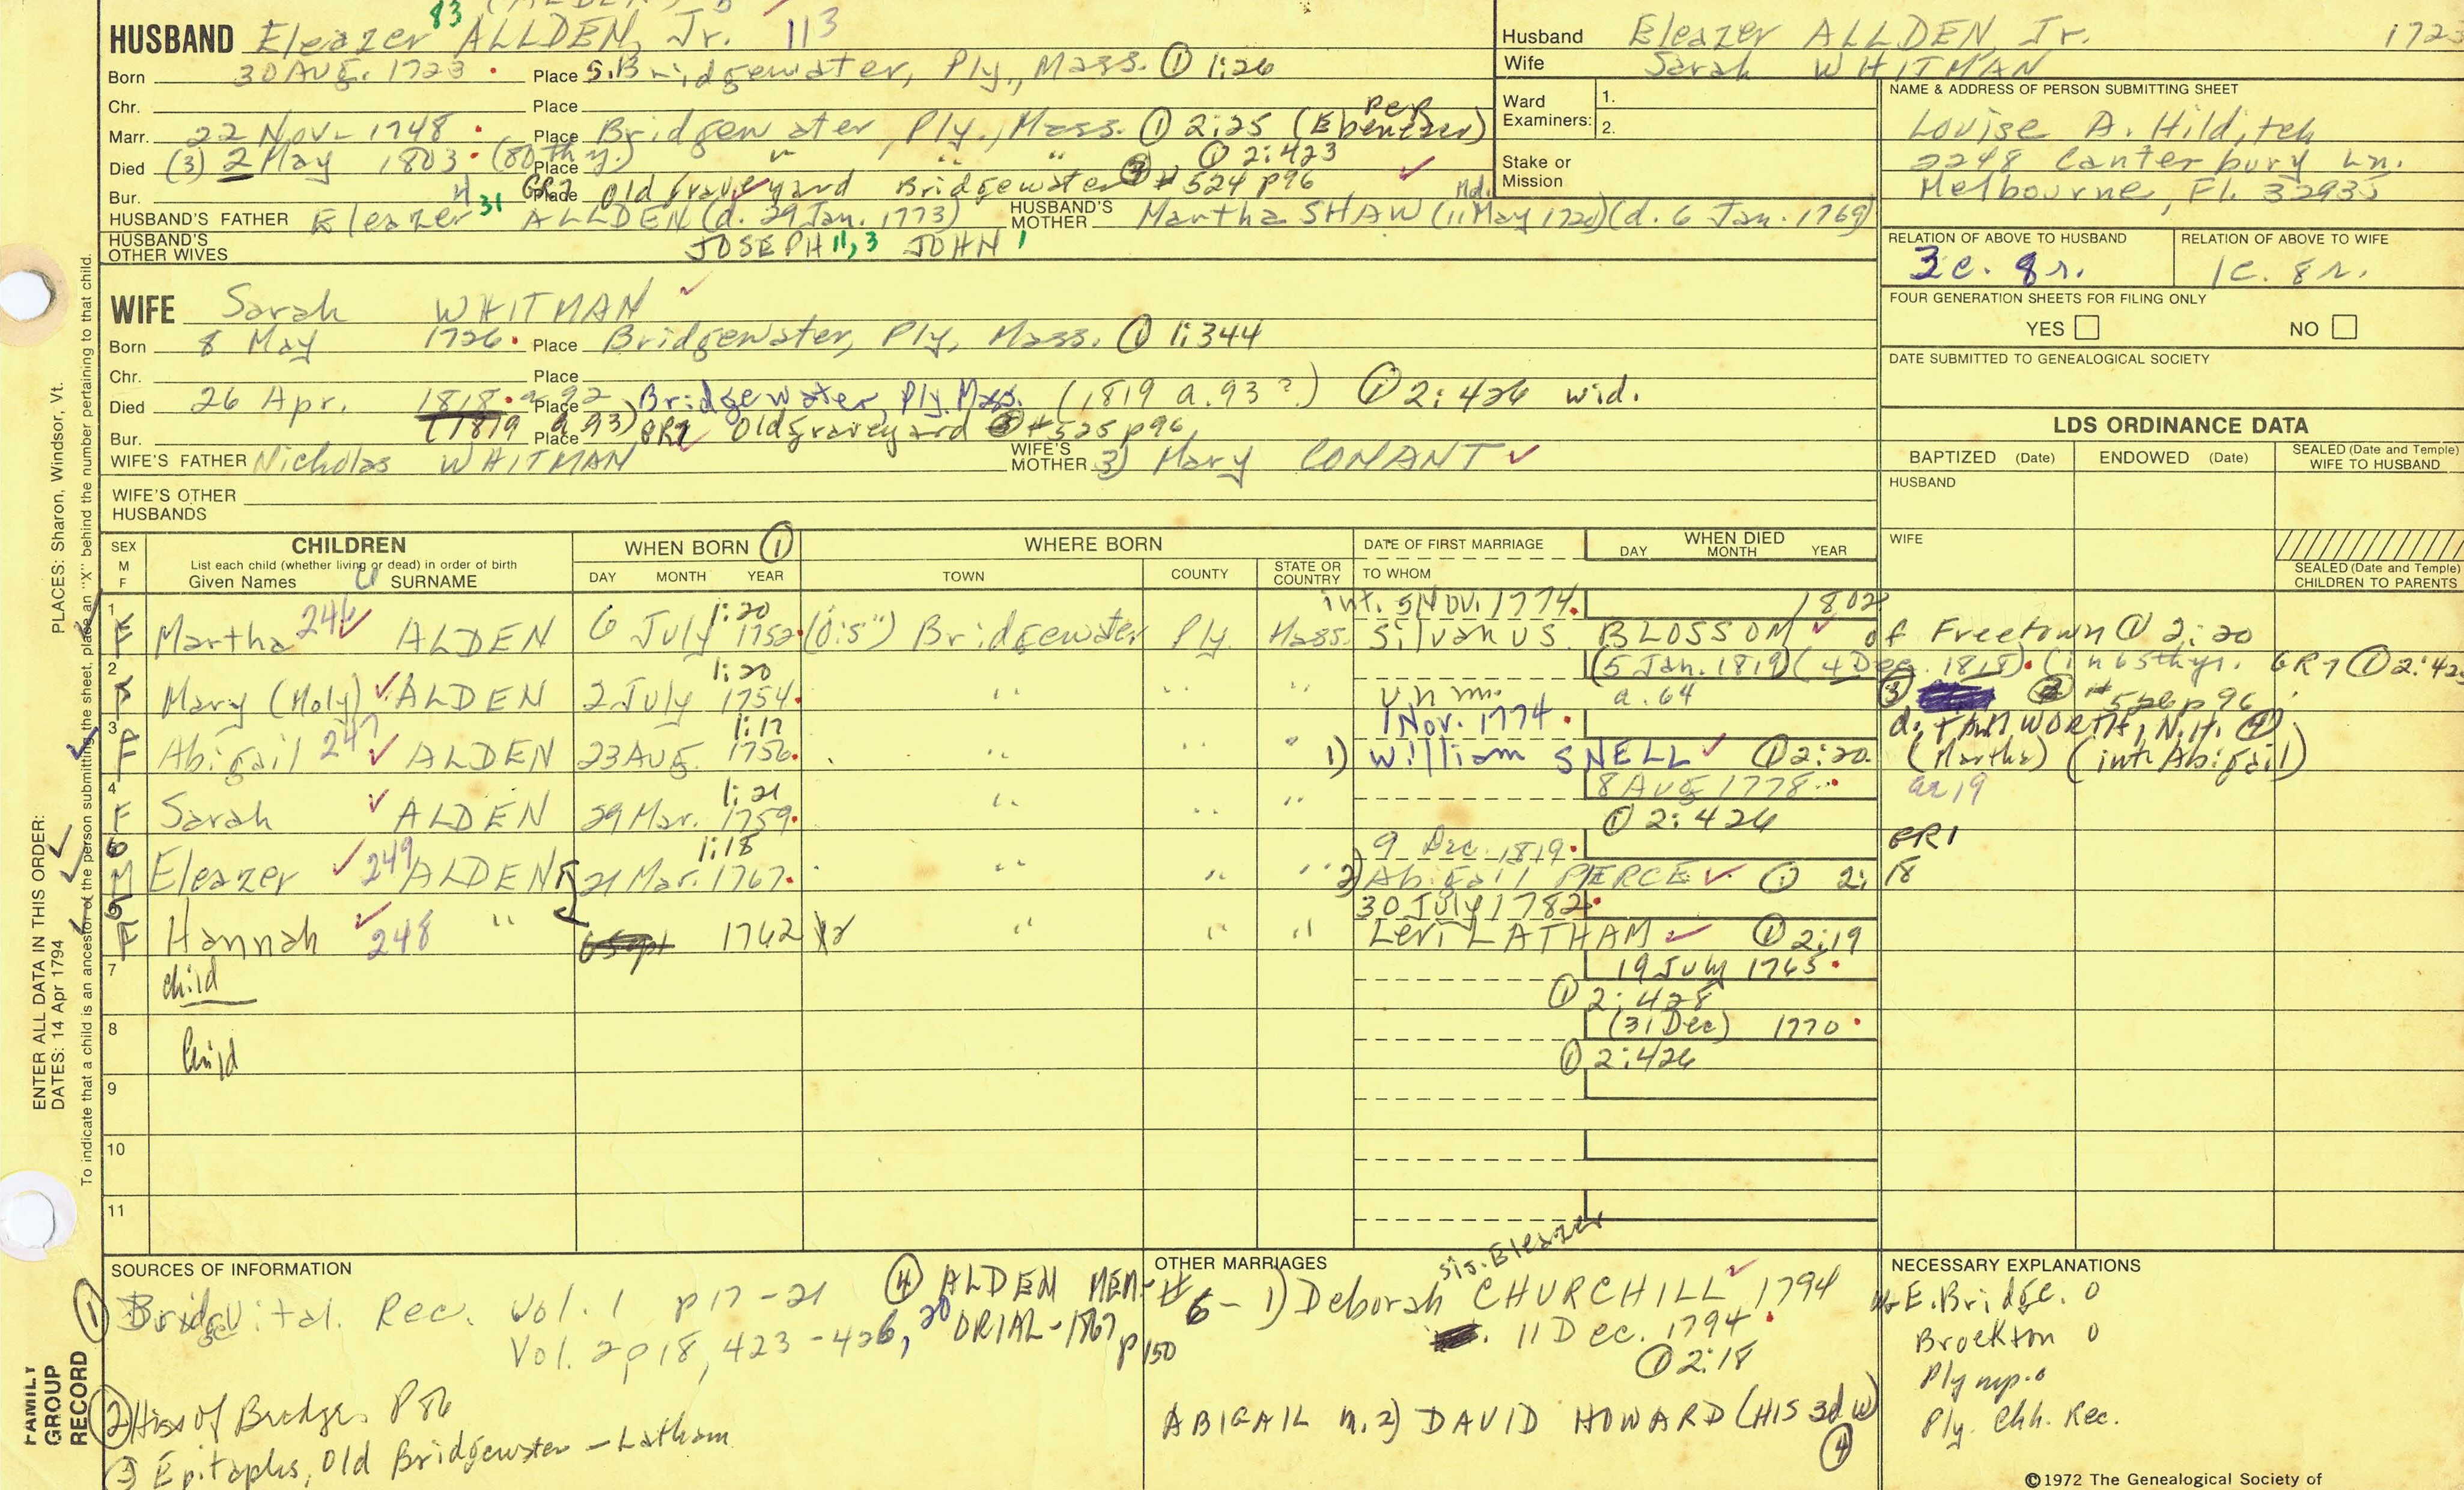 83
HUSBAND Eleazer ALLDEN, Jr. 113
Born 30 AUG. 1723 . Place S. Bridgewater, Ply., Mass. ① 1:26
Chr. Place
Marr. 22 Nov. 1748 . Place Bridgewater, Ply., Mass. ① 2:25 (Ebenezer)
Died (3) 2 May 1803 . (80th y.) Place " " " ① 2:423
Bur. Place GR7 Old graveyard Bridgewater ③ # 524 p96
HUSBAND'S FATHER Eleazer 31 ALLDEN (d. 29 Jan. 1773) HUSBAND'S MOTHER Martha SHAW (11 May 1720) (d. 6 Jan. 1769)
HUSBAND'S OTHER WIVES JOSEPH 11, 3 JOHN 1
WIFE Sarah WHITMAN
Born 8 May 1726 . Place Bridgewater, Ply, Mass. ① 1:344
Chr. Place
Died 26 Apr. 1818 . a 92 Place Bridgewater, Ply. Mass. (1819 a. 93 ?) ① 2:426 wid.
Bur. (1819 a 93) Place GR7 Old graveyard ③ #525 p96
WIFE'S FATHER Nicholas WHITMAN WIFE'S MOTHER 3) Mary CONANT
WIFE'S OTHER HUSBANDS
Husband Eleazer ALLDEN, Jr. 1723
Wife Sarah WHITMAN
Ward Examiners: 1.
2.
Stake or Mission
NAME & ADDRESS OF PERSON SUBMITTING SHEET
Louise A. Hilditch
2248 Canterbury Ln.
Melbourne, Fl. 32935
RELATION OF ABOVE TO HUSBAND RELATION OF ABOVE TO WIFE
3c. 8r. 1c. 8r.
FOUR GENERATION SHEETS FOR FILING ONLY
YES NO
DATE SUBMITTED TO GENEALOGICAL SOCIETY
LDS ORDINANCE DATA
BAPTIZED (Date) ENDOWED (Date) SEALED (Date and Temple) WIFE TO HUSBAND
HUSBAND
WIFE
SEALED (Date and Temple) CHILDREN TO PARENTS
SEX M F
CHILDREN
List each child (whether living or dead) in order of birth
Given Names SURNAME
WHEN BORN ①
DAY MONTH YEAR
WHERE BORN
TOWN COUNTY STATE OR COUNTRY
DATE OF FIRST MARRIAGE
TO WHOM
WHEN DIED
DAY MONTH YEAR
1:20 int. 5 Nov. 1774. 1802
1 F Martha 246 ALDEN 6 July 1752 (o.s") Bridgewater Ply. Mass. Silvanus BLOSSOM of Freetown ① 2:20
1:20 (5 Jan. 1819) (4 Dec. 1818). (in 65th yr. GR7 ① 2:425
2 F Mary (Moly) ALDEN 2 July 1754 . " " " unm. a. 64 ③ # 526 p 96
1:17 1 Nov. 1774 . d. TAMWORTH, N.H. ④
3 F Abigail 247 ALDEN 23 AUG. 1756 . " " " 1) William SNELL ① 2:20. (Martha) (int. Abigail)
1:21 8 Aug 1778 . ae 19
4 F Sarah ALDEN 29 Mar. 1759 . " " " ① 2:426
1:18 9 Dec. 1819 . GR1
6 M Eleazer 249 ALDEN 21 Mar. 1767 . " " " 2) Abigail PIERCE ① 2:18
30 July 1782 .
5 F Hannah 248 " 1762 " " " Levi LATHAM ① 2:19
7 child 19 July 1765 .
① 2:428
8 Child (31 Dec) 1770 .
① 2:426
9
10
11
SOURCES OF INFORMATION
① Bridge Vital. Rec. Vol. 1 p 17-21
Vol. 2 p 18, 423-426, 20
② Hist of Bridge. P 86
③ Epitaphs, Old Bridgewater - Latham
④ ALDEN MEMORIAL - 1867 p150
OTHER MARRIAGES
sis. Eleazer
#6 - 1) Deborah CHURCHILL 1794
11 Dec. 1794 .
① 2:18
ABIGAIL m. 2) DAVID HOWARD (HIS 3d w)
④
NECESSARY EXPLANATIONS
E. Bridge. 0
Brockton 0
Plymp. 0
Ply. Chh. Rec.
©1972 The Genealogical Society of
PLACES: Sharon, Windsor, Vt.
To indicate that a child is an ancestor of the person submitting the sheet, place an "X" behind the number pertaining to that child.
ENTER ALL DATA IN THIS ORDER:
DATES: 14 Apr 1794
FAMILY GROUP RECORD